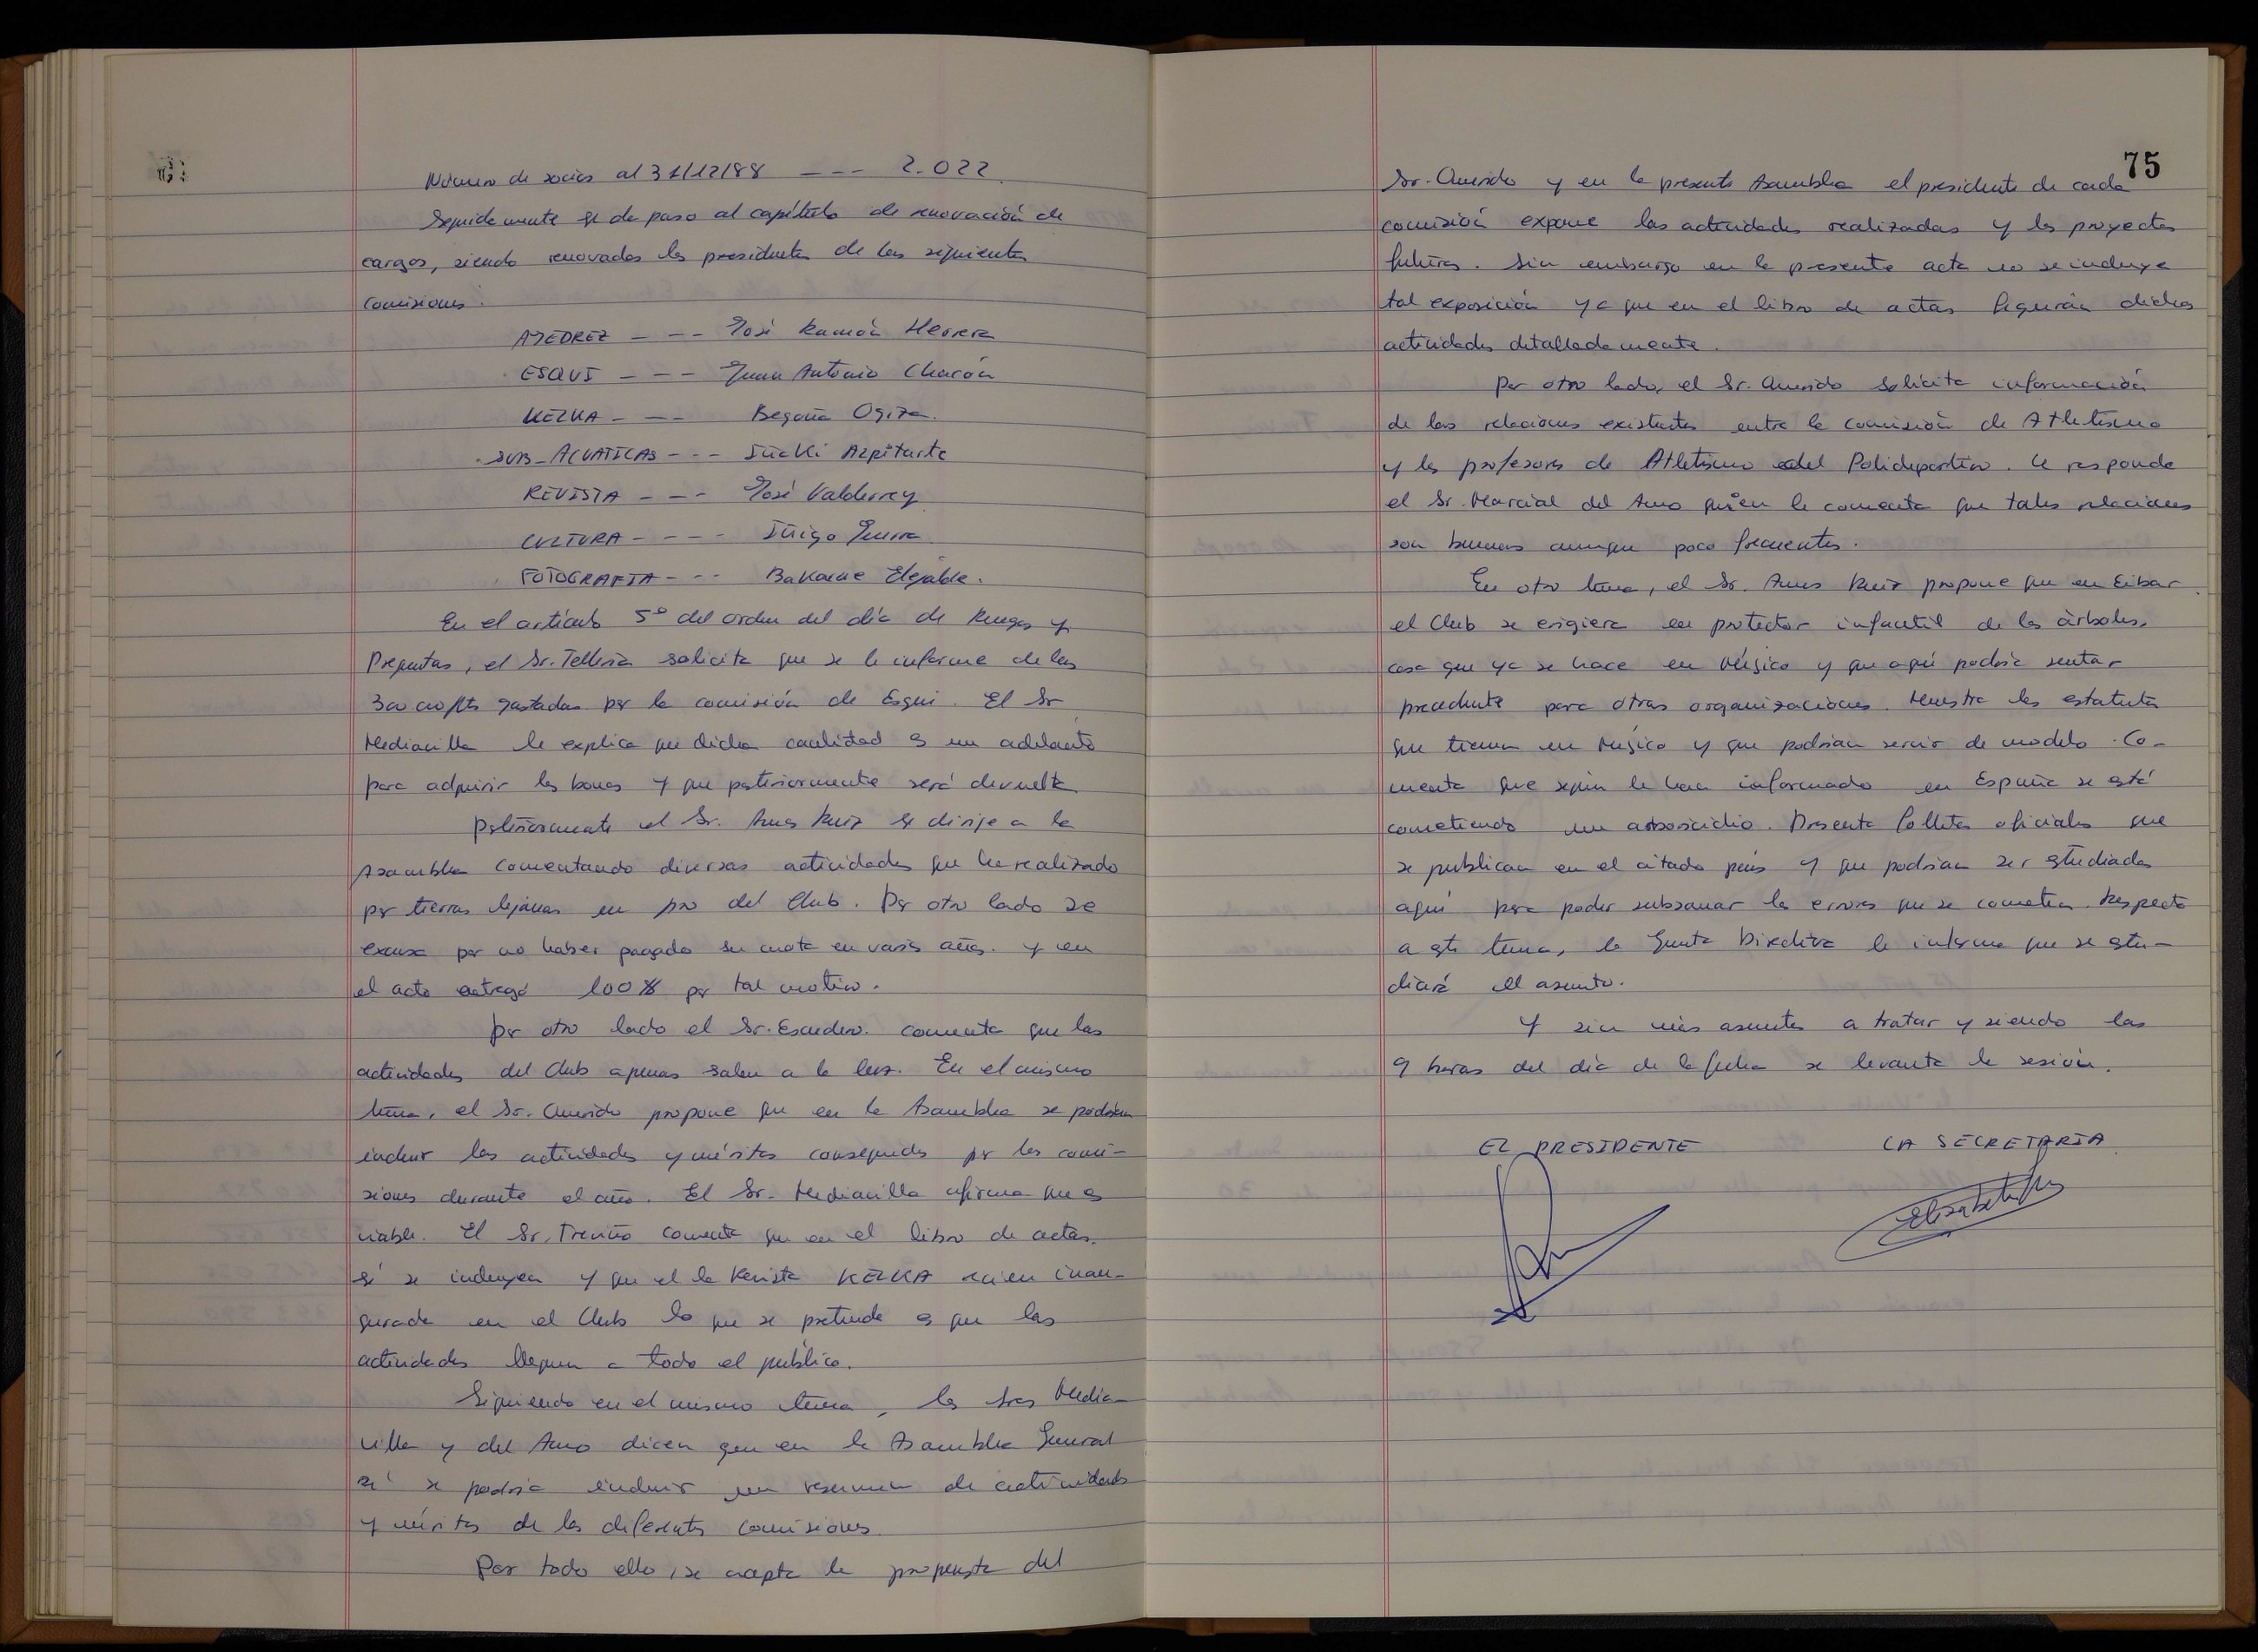 Número de socios al 31/12/88 --- 2.022.
Seguidamente se da paso al capítulo de renovación de
cargos, siendo renovados los presidentes de las siguientes
comisiones:
AJEDREZ --- José Ramón Herrera
ESQUI --- Juan Antonio Chacón
KEZKA --- Begoña Ogiza.
SUB-ACUATICAS --- Iñaki Azpitarte
REVISTA --- José Valderrey
CULTURA ---- Iñigo Guerra
FOTOGRAFIA --- Bakarne Elejalde.
En el artículo 5º del orden del día de Ruegos y
Preguntas, el Sr. Tellería solicita que se le informe de las
300.000 pts gastadas por la comisión de Esqui. El Sr
Mediavilla le explica que dicha cantidad es un adelanto
para adquirir los bonos y que posteriormente será devuelta.
Posteriormente el Sr. Amas Ruiz se dirije a la
Asamblea comentando diversas actividades que ha realizado
por tierras lejanas en pro del Club. Por otro lado se
excusa por no haber pagado su cuota en varios años. y en
el acto entregó 100 $ por tal motivo.
Por otro lado el Sr. Escudero. comenta que las
actividades del Club apenas salen a la luz. En el mismo
tema, el Sr. Querido propone que en la Asamblea se podrían
incluir las actividades y méritos conseguidos por las comi-
siones durante el año. El Sr. Mediavilla afirma que es
viable. El Sr. Treviño comenta que en el libro de actas.
sí se incluyen y que el la Revista KEZKA recien inau-
gurada en el Club lo que se pretende es que las
actividades lleguen a todo el público.
Siguiendo en el mismo tema, los Sres Media-
villa y del Amo dicen que en la Asamblea General
sí se podría incluir un resumen de actividades
y méritos de las diferentes comisiones.
Por todo ello, se acepta la propuesta del
75
Sr. Querido y en la presente Asamblea el presidente de cada
comisión expone las actividades realizadas y los proyectos
futuros. Sin embargo en la presente acta no se incluye
tal exposición ya que en el libro de actas figurán dichas
actividades detalladamente.
Por otro lado, el Sr. Querido solicita información
de las relaciones existentes entre la comisión de Atletismo
y los profesores de Atletismo del Polideportivo. Le responde
el Sr. Marcial del Amo quien le comenta que tales relaciones
son buenas aunque poco frecuentes.
En otro tema, el Sr. Amas Ruiz propone que en Eibar
el Club se erigiera en protector infantil de los árboles,
cosa que ya se hace en Méjico y que aquí podría sentar
precedente para otras organizaciones. Muestra los estatutos
que tienen en Méjico y que podrían servir de modelo. Co-
menta que según le han informado en España se está
cometiendo un arboricidio. Presenta folletos oficiales que
se publican en el citado país y que podrían ser estudiados
aquí para poder subsanar los errores que se cometen. Respecto
a este tema, la Junta Directiva le informa que se estu-
diará el asunto.
Y sin más asuntos a tratar y siendo las
9 horas del día de la fecha se levanta la sesión.
EL PRESIDENTE LA SECRETARIA